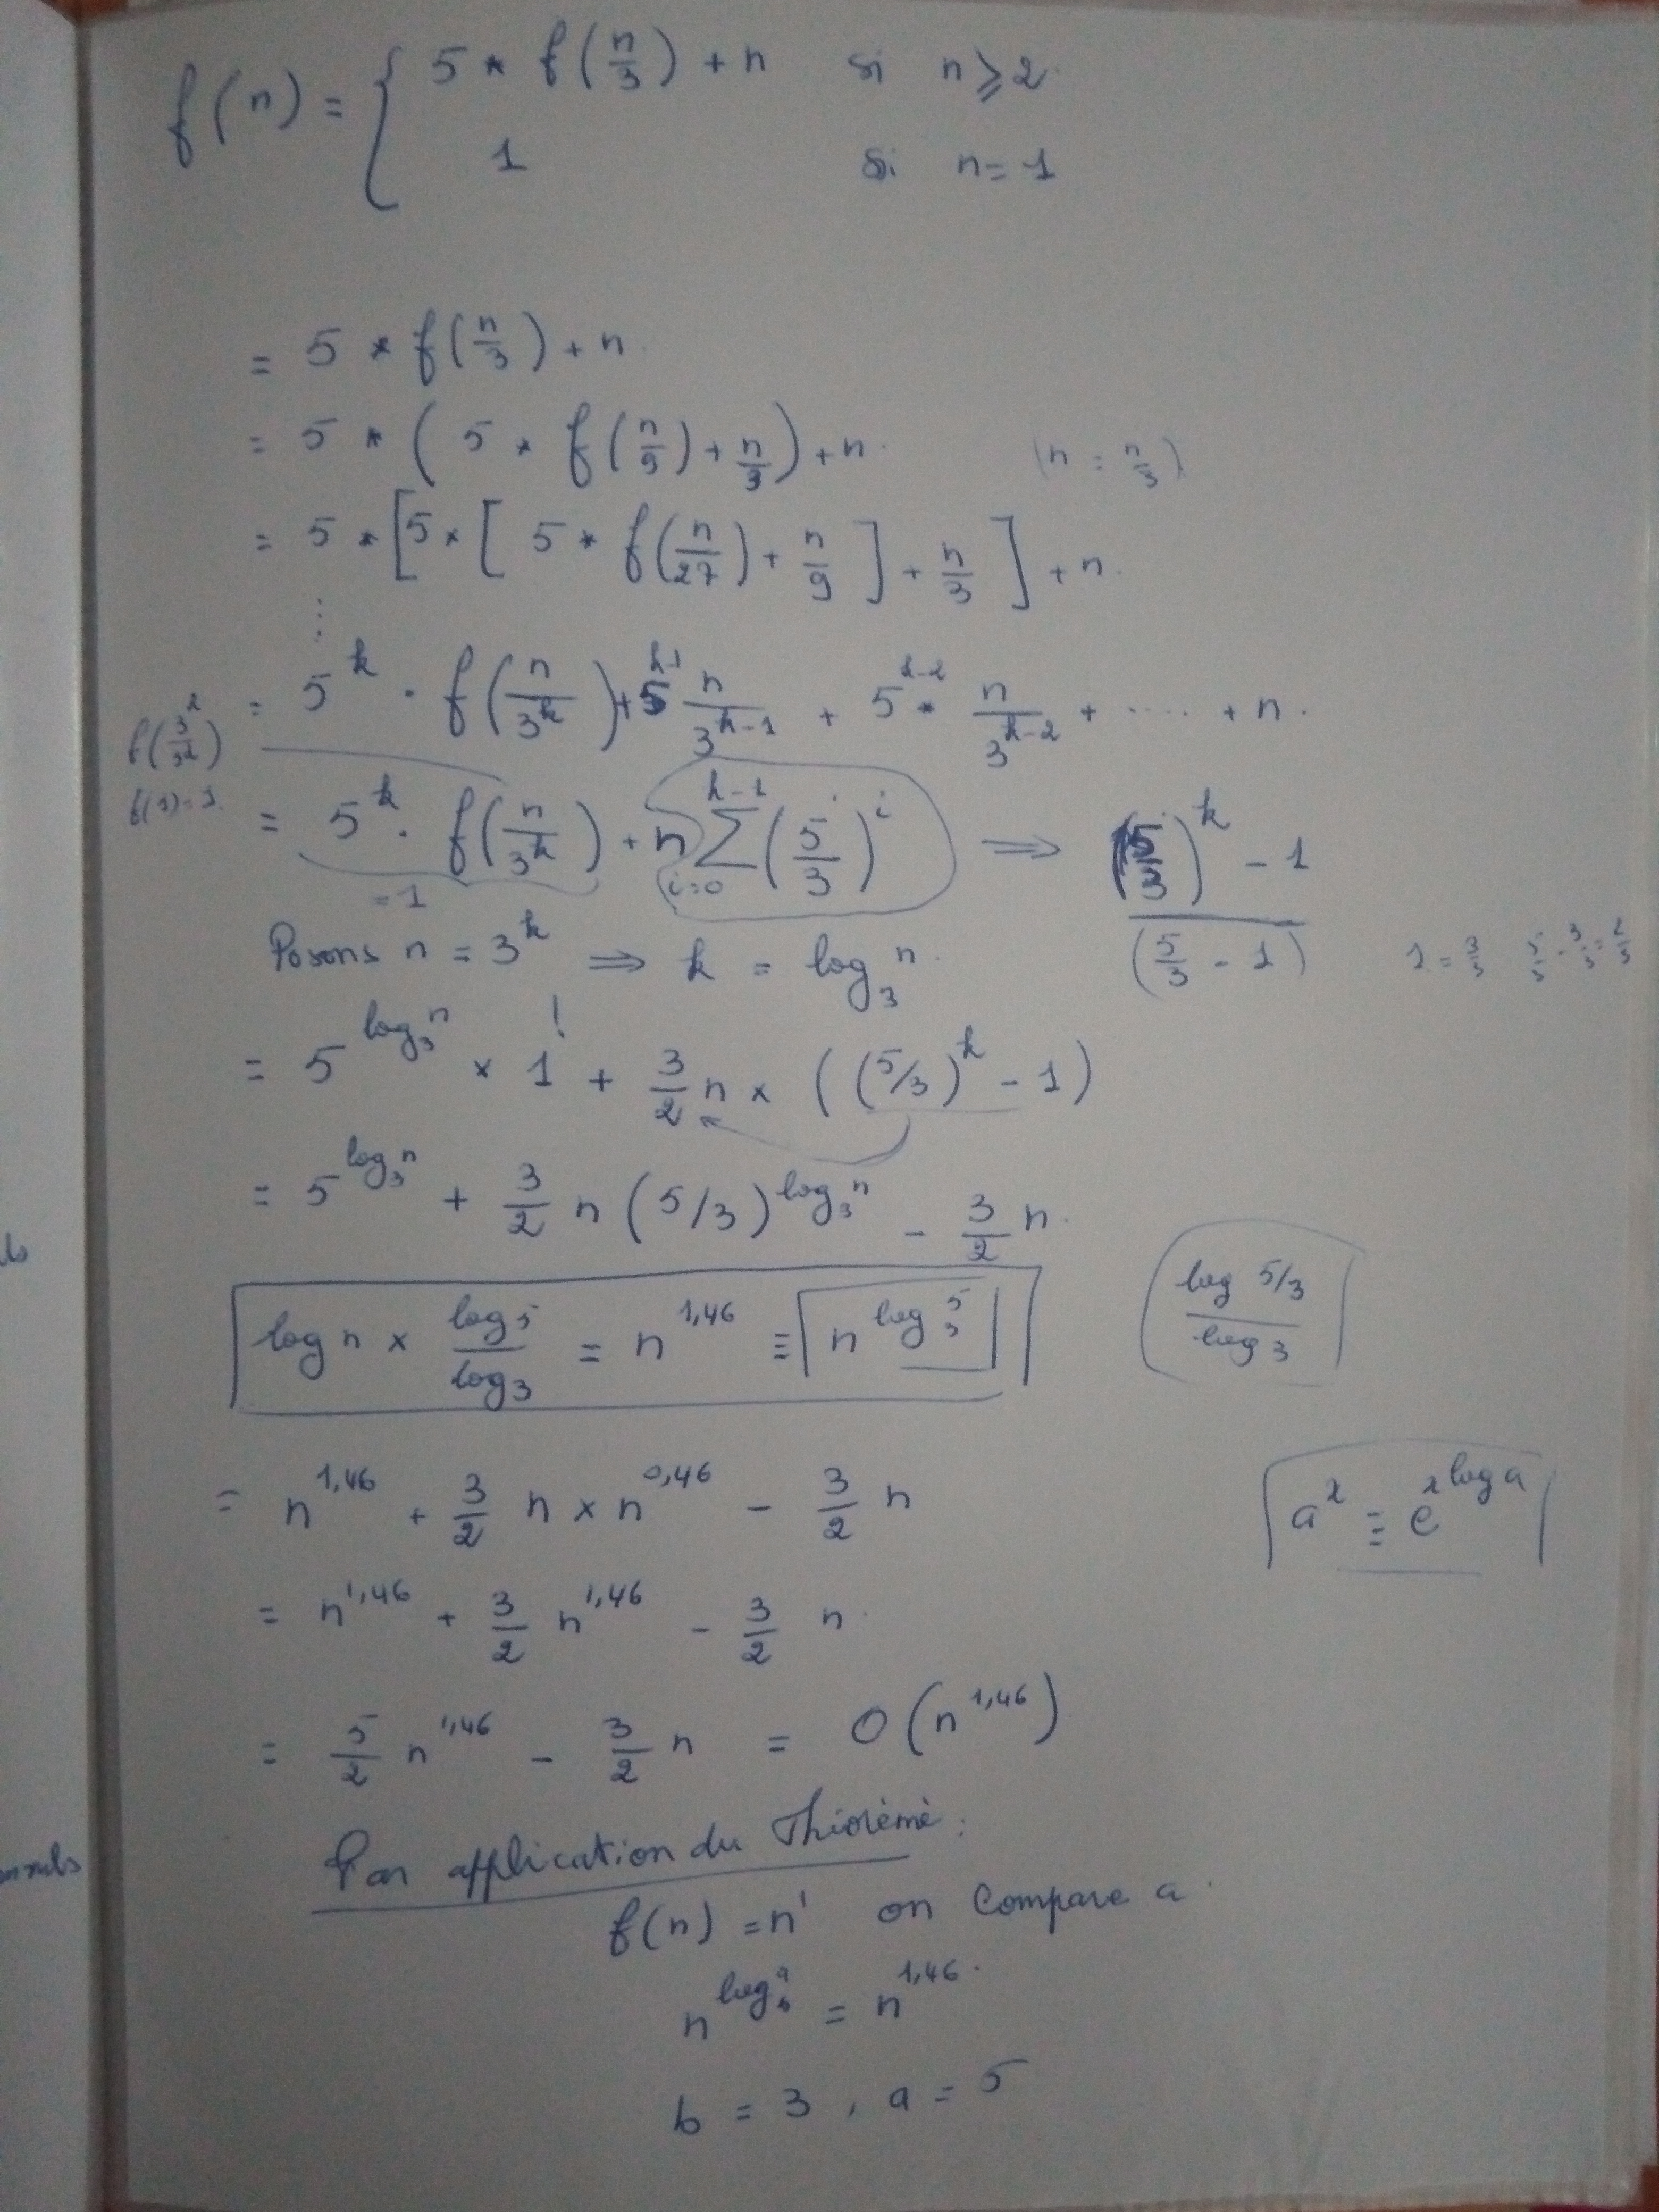 f(n) = { 5 * f(n/3) + n si n ⩾ 2
1 si n = 1
= 5 * f(n/3) + n
= 5 * ( 5 * f(n/9) + n/3 ) + n (n = n/3)
= 5 * [ 5 * [ 5 * f(n/27) + n/9 ] + n/3 ] + n
⋮
= 5^k · f(n/3^k) + 5^(k-1) n/3^(k-1) + 5^(k-2) * n/3^(k-2) + ..... + n
f(3^k/3^k)
f(1) = 1
= 5^k · f(n/3^k) + n ∑_(i=0)^(k-1) (5/3)^i ⟹ ((5/3)^k - 1) / (5/3 - 1)
= 1
Posons n = 3^k ⟹ k = log_3 n
1 = 3/3 5/3 - 3/3 = 2/3
= 5^(log_3 n) × 1 ! + 3/2 n × ((5/3)^k - 1)
= 5^(log_3 n) + 3/2 n (5/3)^(log_3 n) - 3/2 n
log n × log 5 / log 3 = n^1,46 ≡ n^(log_3 5)
log 5/3 / log 3
= n^1,46 + 3/2 n × n^0,46 - 3/2 n
a^x ≡ e^(x log a)
= n^1,46 + 3/2 n^1,46 - 3/2 n
= 5/2 n^1,46 - 3/2 n = O(n^1,46)
Par application du Théorème :
f(n) = n^1 on compare a
n^(log_b a) = n^1,46
b = 3 , a = 5